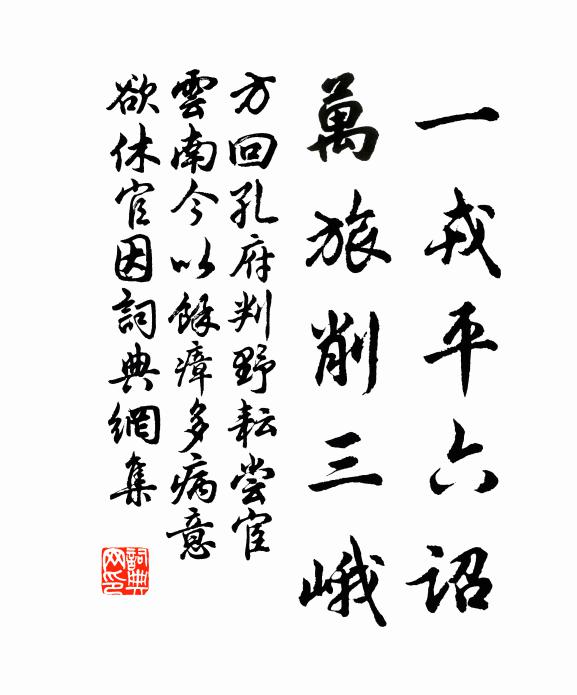 一戎平六詔
萬旅削三峨
方回孔府判野耘嘗官
雲南今以餘瘴多病意
欲休官因詞典網集
詞典网印